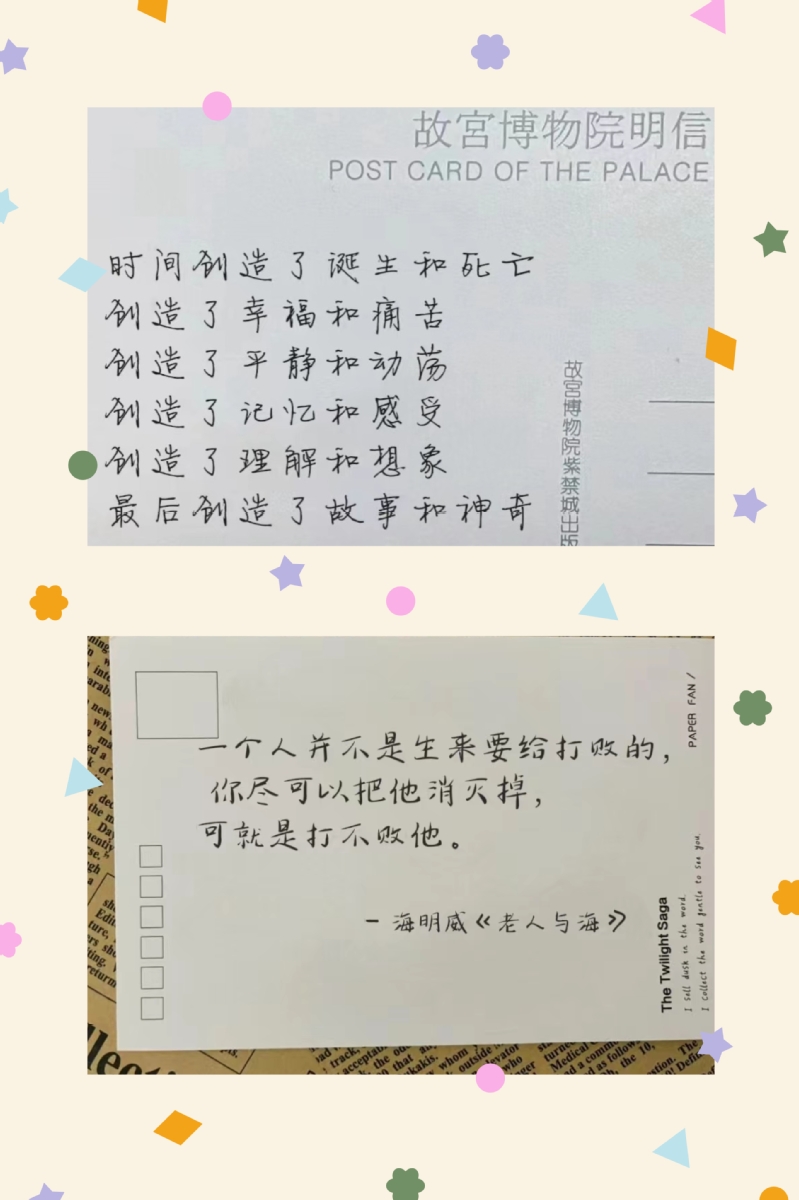 故宮博物院明信
POST CARD OF THE PALACE
时间创造了诞生和死亡
创造了幸福和痛苦
创造了平静和动荡
创造了记忆和感受
创造了理解和想象
最后创造了故事和神奇
故宮博物院紫禁城出版
PAPER FAN /
一个人并不是生来要给打败的，
你尽可以把他消灭掉，
可就是打不败他。
- 海明威《老人与海》
The Twilight Saga
I sell dusk in the word.
I collect the word gentle to see you.